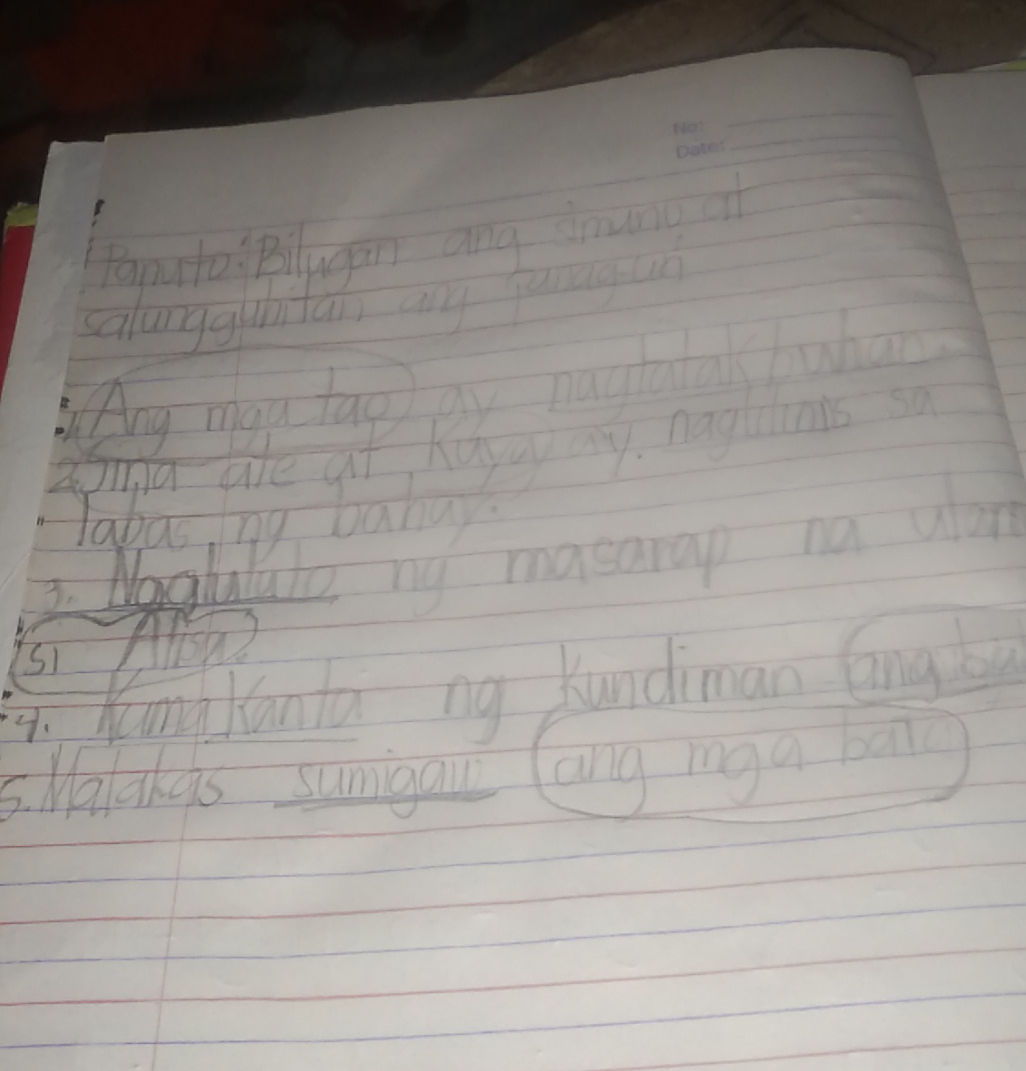 No:
Date:
Panuto: Bilugan ang simunu at
salungguhitan ang panaguri
1. Ang mga tao ay nagtatakbuhan
2. Sina ate at Kuya ay. naglilinis sa
labas ng bahay.
3. Nagluluto ng masarap na ulam
si Alisa.
4. kumakanta ng kundiman ang
5. Malakas sumigaw ang mga bata